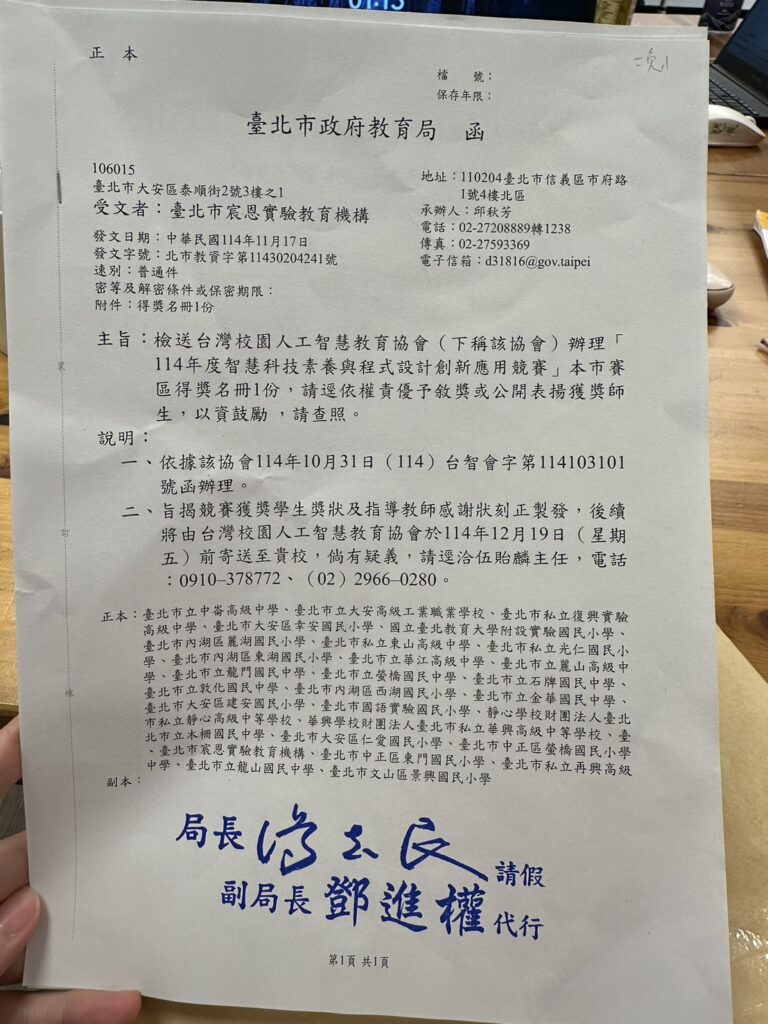 01:13
正 本
檔 號：
保存年限：
臺北市政府教育局 函
106015
臺北市大安區泰順街2號3樓之1
受文者：臺北市宸恩實驗教育機構
地址：110204臺北市信義區市府路
1號4樓北區
承辦人：邱秋芳
電話：02-27208889轉1238
傳真：02-27593369
電子信箱：d31816@gov.taipei
發文日期：中華民國114年11月17日
發文字號：北市教資字第11430204241號
速別：普通件
密等及解密條件或保密期限：
附件：得獎名冊1份
主旨：檢送台灣校園人工智慧教育協會（下稱該協會）辦理「
114年度智慧科技素養與程式設計創新應用競賽」本市賽
區得獎名冊1份，請逕依權責優予敘獎或公開表揚獲獎師
生，以資鼓勵，請查照。
說明：
一、依據該協會114年10月31日（114）台智會字第114103101
號函辦理。
二、旨揭競賽獲獎學生獎狀及指導教師感謝狀刻正製發，後續
將由台灣校園人工智慧教育協會於114年12月19日（星期
五）前寄送至貴校，倘有疑義，請逕洽伍貽麟主任，電話
：0910–378772、（02）2966–0280。
正本：臺北市立中崙高級中學、臺北市立大安高級工業職業學校、臺北市私立復興實驗
高級中學、臺北市大安區幸安國民小學、國立臺北教育大學附設實驗國民小學、
臺北市內湖區麗湖國民小學、臺北市私立東山高級中學、臺北市私立光仁國民小
學、臺北市內湖區東湖國民小學、臺北市立華江高級中學、臺北市立麗山高級中
學、臺北市立龍門國民中學、臺北市立螢橋國民中學、臺北市立石牌國民中學、
臺北市立敦化國民中學、臺北市內湖區西湖國民小學、臺北市立金華國民中學、
臺北市大安區建安國民小學、臺北市國語實驗國民小學、靜心學校財團法人臺北
市私立靜心高級中等學校、華興學校財團法人臺北市私立華興高級中等學校、臺
北市立木柵國民中學、臺北市大安區仁愛國民小學、臺北市中正區螢橋國民小學
、臺北市宸恩實驗教育機構、臺北市中正區東門國民小學、臺北市私立再興高級
中學、臺北市立龍山國民中學、臺北市文山區景興國民小學
副本：
裝
訂
線
局長 湯志民 請假
副局長 鄧進權 代行
第1頁 共1頁